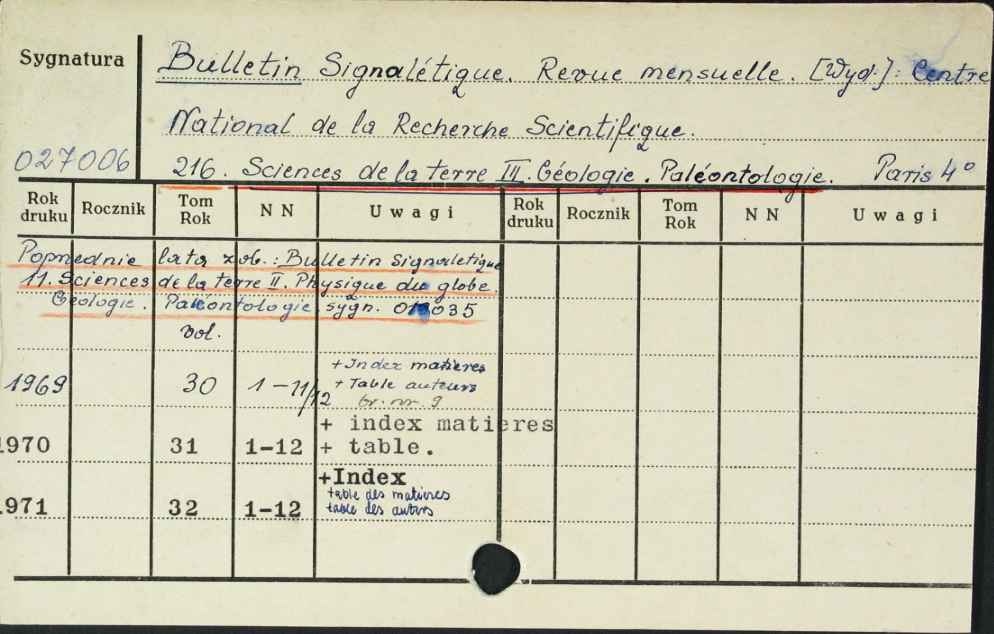 Sygnatura
Bulletin Signalétique. Revue mensuelle. [Wyd.]: Centre
National de la Recherche Scientifique.
027006
216. Sciences de la terre III. Géologie. Paléontologie. Paris 4°
Rok druku Rocznik Tom Rok N N Uwagi Rok druku Rocznik Tom Rok N N Uwagi
Poprzednie lata zob.: Bulletin Signaletique
11. Sciences de la terre II. Physique du globe.
Géologie. Paléontologie sygn. 035
vol.
+ Index matières
1969 30 1-11/12 + Table auteurs
br. nr. 9
+ index matieres
1970 31 1-12 + table.
+Index
table des matières
1971 32 1-12 table des auters